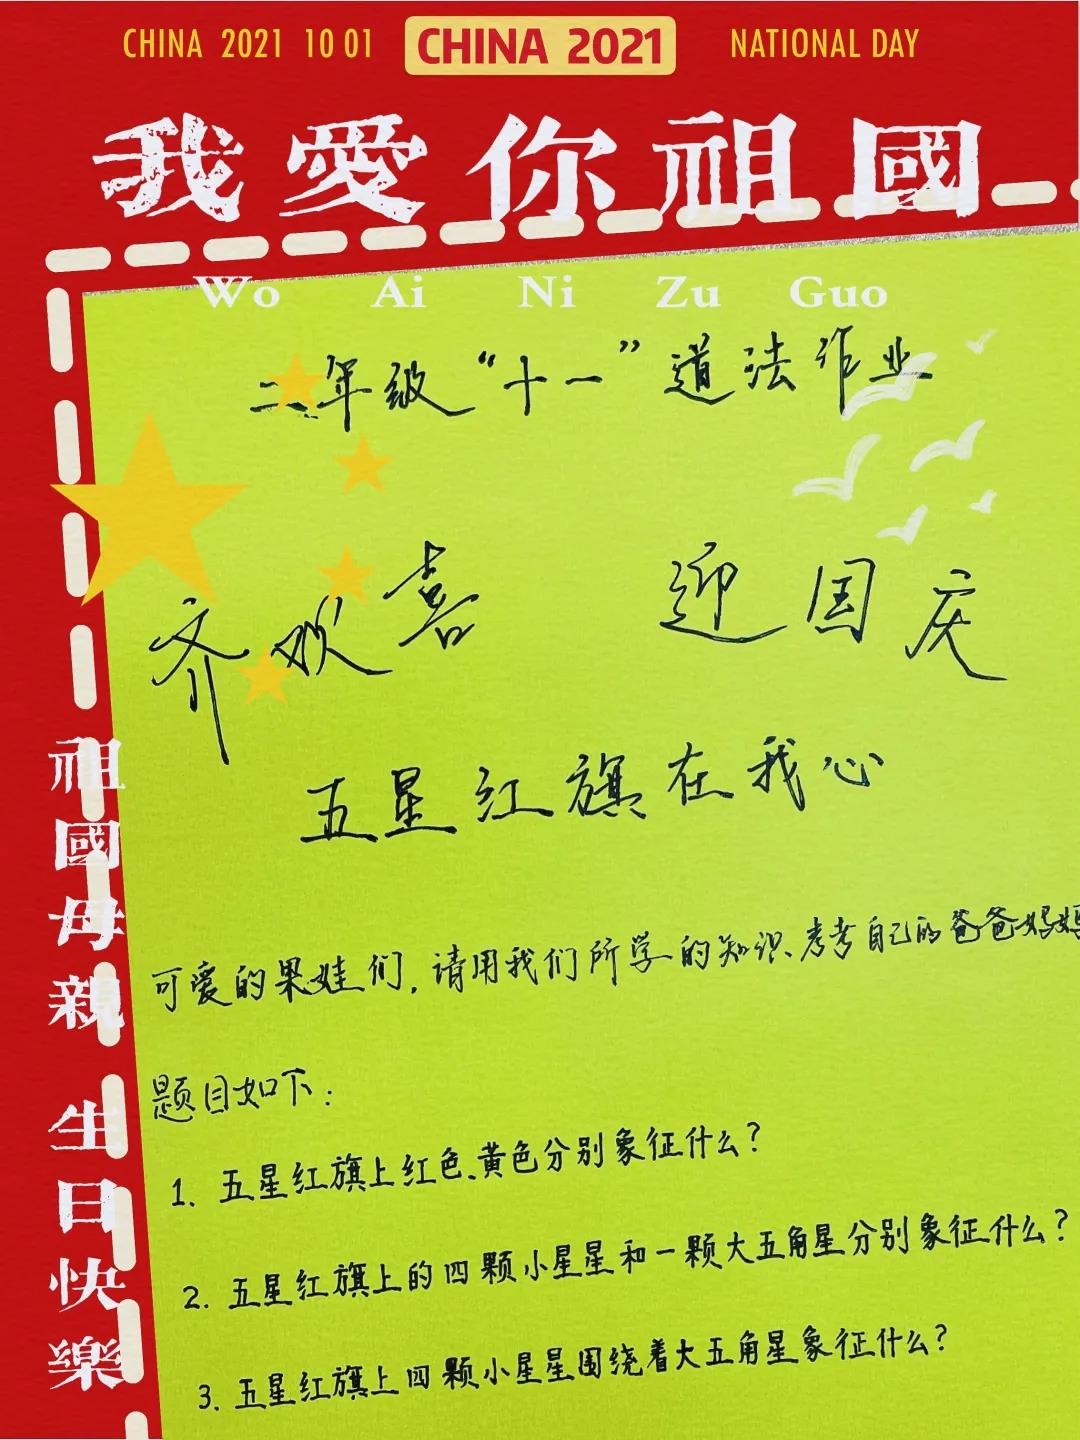 CHINA 2021 10 01 CHINA 2021 NATIONAL DAY
我愛你祖國
Wo Ai Ni Zu Guo
二年级“十一”道法作业
齐欢喜 迎国庆
五星红旗在我心
可爱的果娃们,请用我们所学的知识、考考自己的爸爸妈妈
题目如下:
1. 五星红旗上红色、黄色分别象征什么?
2. 五星红旗上的四颗小星星和一颗大五角星分别象征什么?
3. 五星红旗上四颗小星星围绕着大五角星象征什么?
祖國母親 生日快樂